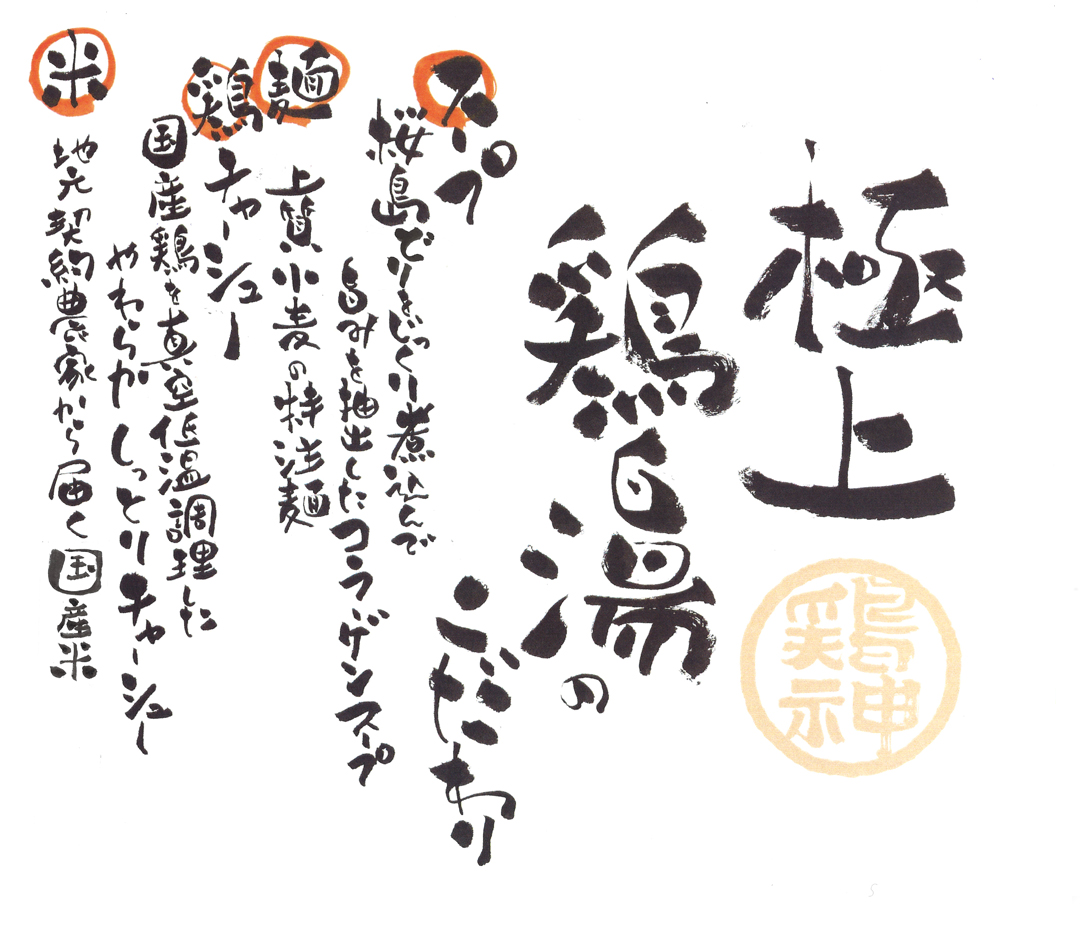 極上
鶏神
鶏白湯の
こだわり
スープ
桜島どりをじっくり煮込んで
旨みを抽出したコラーゲンスープ
麺
上質小麦の特注麺
鶏チャーシュー
国産鶏を真空低温調理した
やわらかしっとりチャーシュー
米
地元契約農家から届く国産米